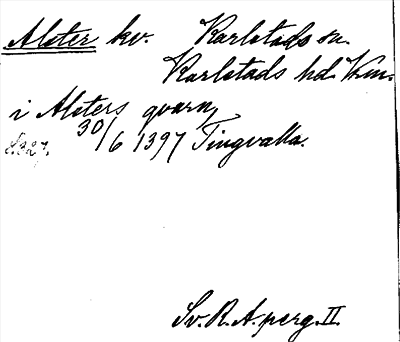 Alster kv. Karlstads sn.
Karlstads hd. Vrm.
i Alsters qvarn,
S. 327. 30/6 1397 Tingvalla.
Sv. R. A. perg. II.